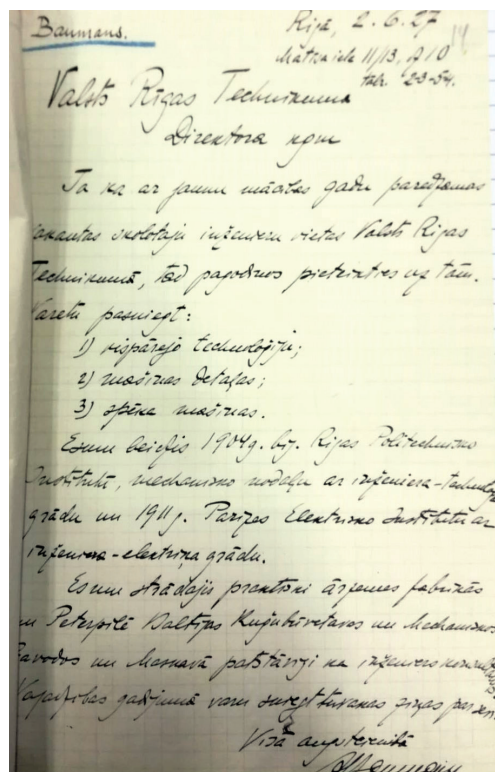 Baumans.
Rīgā, 2.6.27
14
Matīsa ielā 11/13, dz 10
tālr. 23-54.
Valsts Rīgas Technikuma
Direktora kgm
Tā kā ar jaunu mācības gadu paredzamas
vakantas skolotāju inženieru vietas Valsts Rīgas
Technikumā, tad pagodinos pieteikties uz tām.
Varētu pasniegt:
1) vispārējo technoloģiju;
2) mašīnas detaļas;
3) spēka mašīnas.
Esmu beidzis 1904g. bij. Rīgas Politechnisko
Institūtu, mechanisko nodaļu ar inženiera-technologa
grādu un 1911g. Parīzes Elektrisko Institūtu ar
inženiera-elektriķa grādu.
Esmu strādājis praktiski ārzemes fabrikās
un Pēterpilē Baltijas Kuģubūvētavas un Mechaniskos
Zavodos un Maskavā patstāvīgi kā inženiers
Vajadzības gadījumā varu sniegt tuvākas ziņas par sevi.
Visā augstcienībā